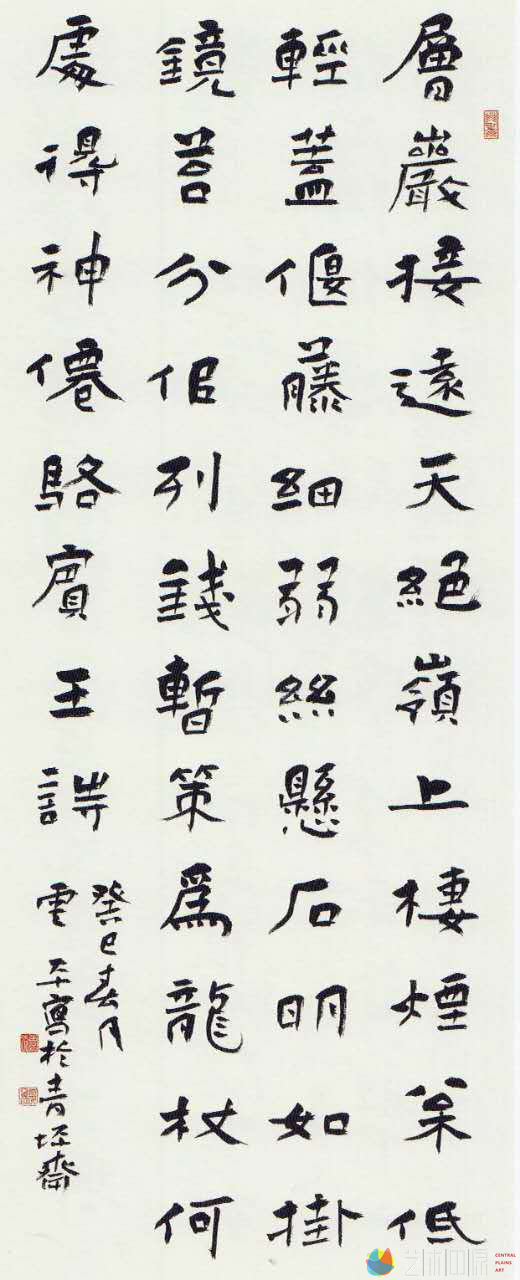 層巖接遠天絕嶺上棲煙枀低
輕蓋偃藤細弱絲懸石明如掛
鏡苔分佀列錢暫策爲龍杖何
處得神僊駱賓王詩
癸巳春月
雲平寫於青坯齋
艺术中原
CENTRAL
PLAINS
ART